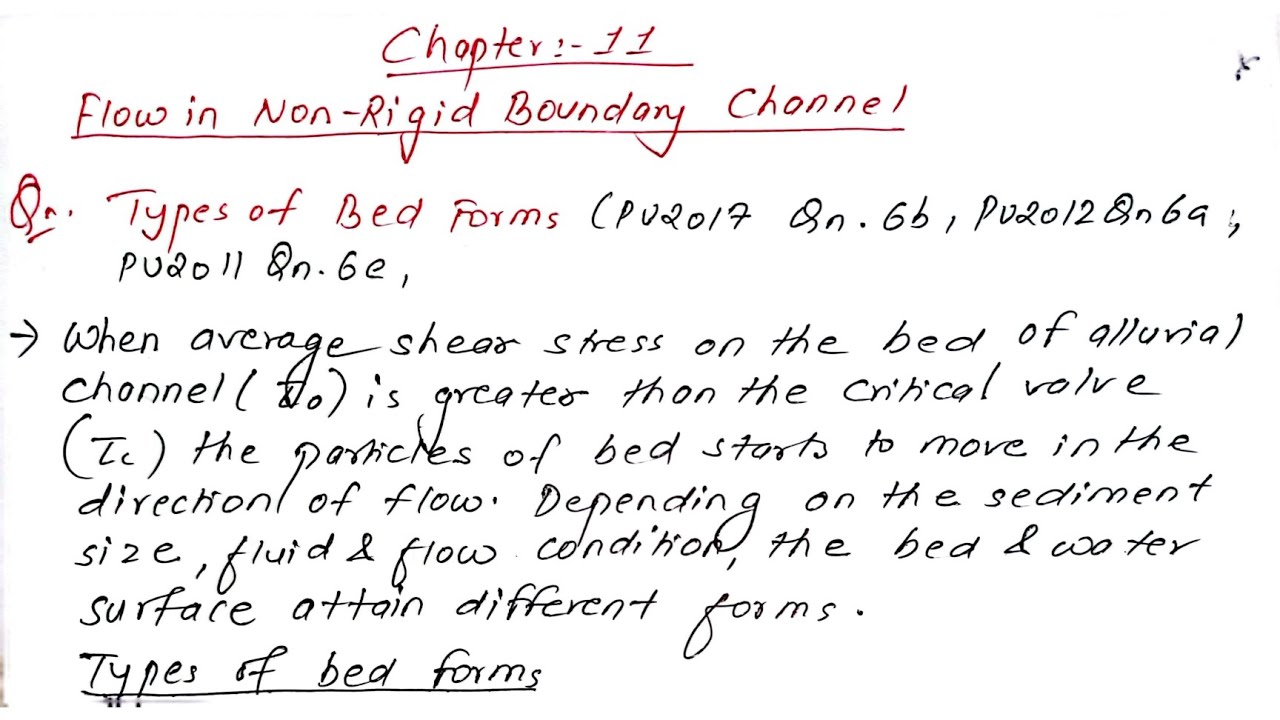 Chapter:- 11
Flow in Non-Rigid Boundary Channel
Qn. Types of Bed Forms (PU2017 Qn. 6b, PU2012 Qn 6a,
PU2011 Qn. 6e,
→ When average shear stress on the bed of alluvial
channel (τo) is greater than the critical valve
(τc) the particles of bed starts to move in the
direction of flow. Depending on the sediment
size, fluid & flow condition, the bed & water
surface attain different forms.
Types of bed forms